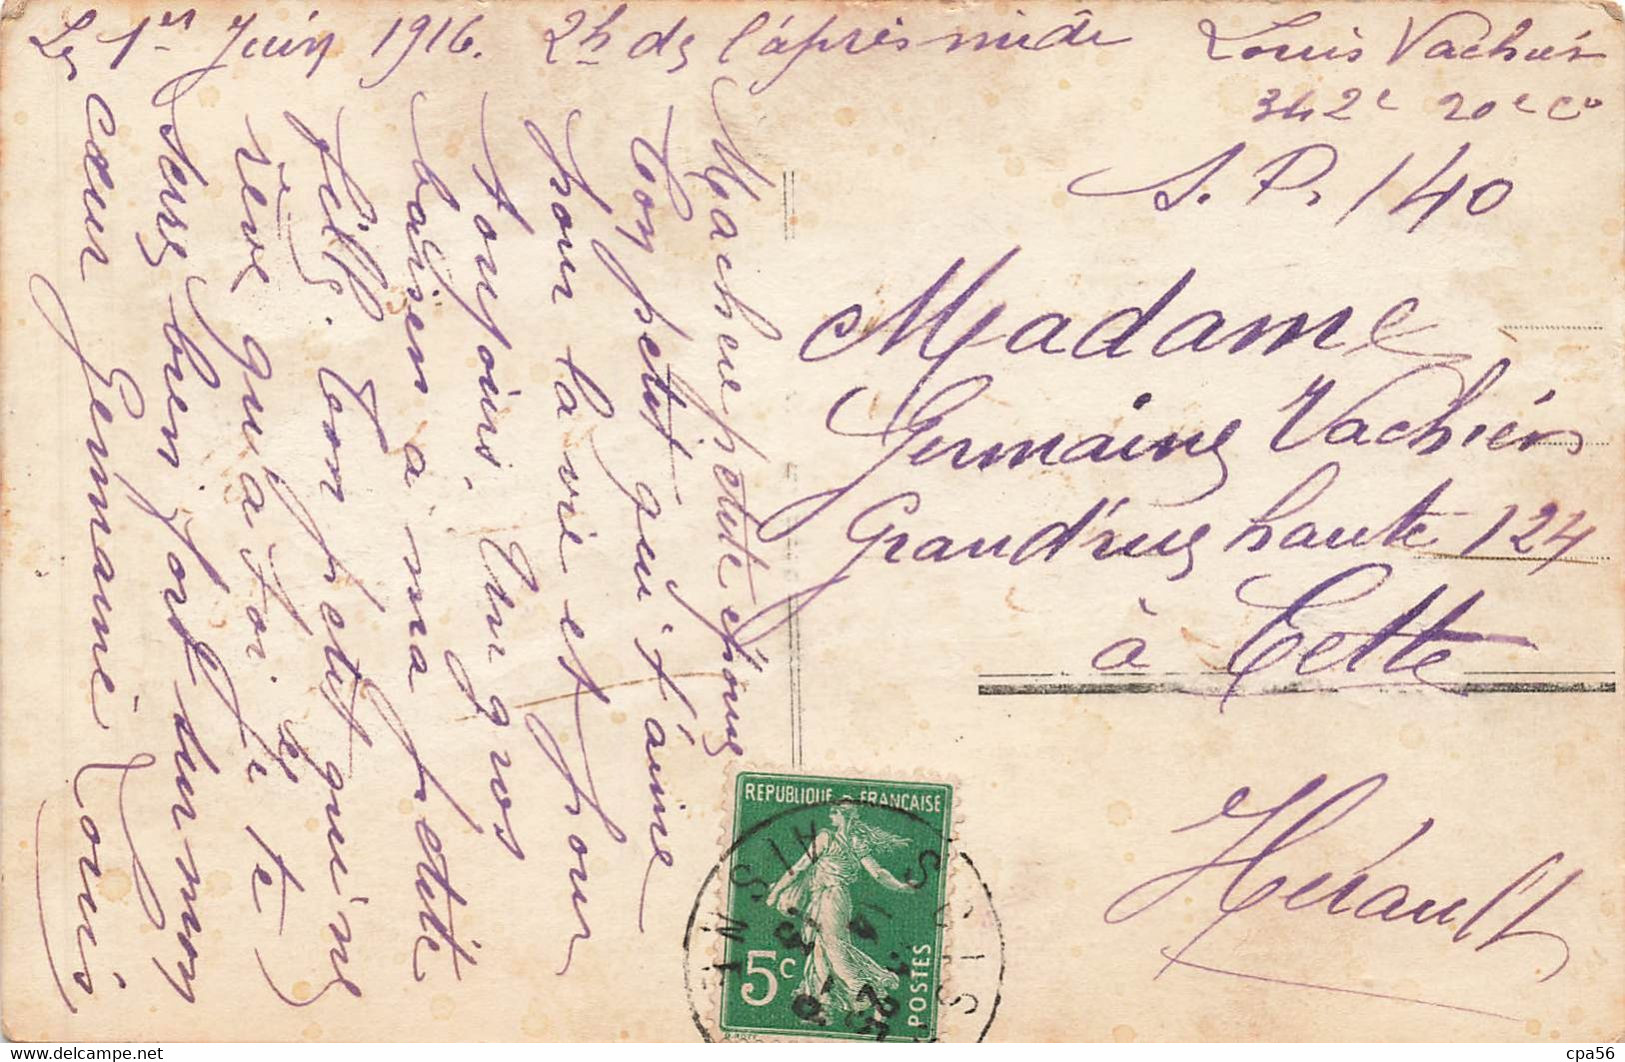 Le 1er Juin 1916. 2h de l'après midi
Louis Vachier
342e 20e Cie
S.P. 140
Ma chère petite épouse
Ton petit qui t'aime
pour la vie et pour
toujours. Un gros
baisers a ma petite
fille. Ton petit qui ne
rêve qu'a toi. Je te
serre bien fort sur mon
cœur Germaine Louis
Madame
Germaine Vachier
Grand'rue haute 124
à Cette
Hérault
REPUBLIQUE FRANÇAISE
5c
POSTES
AISNE